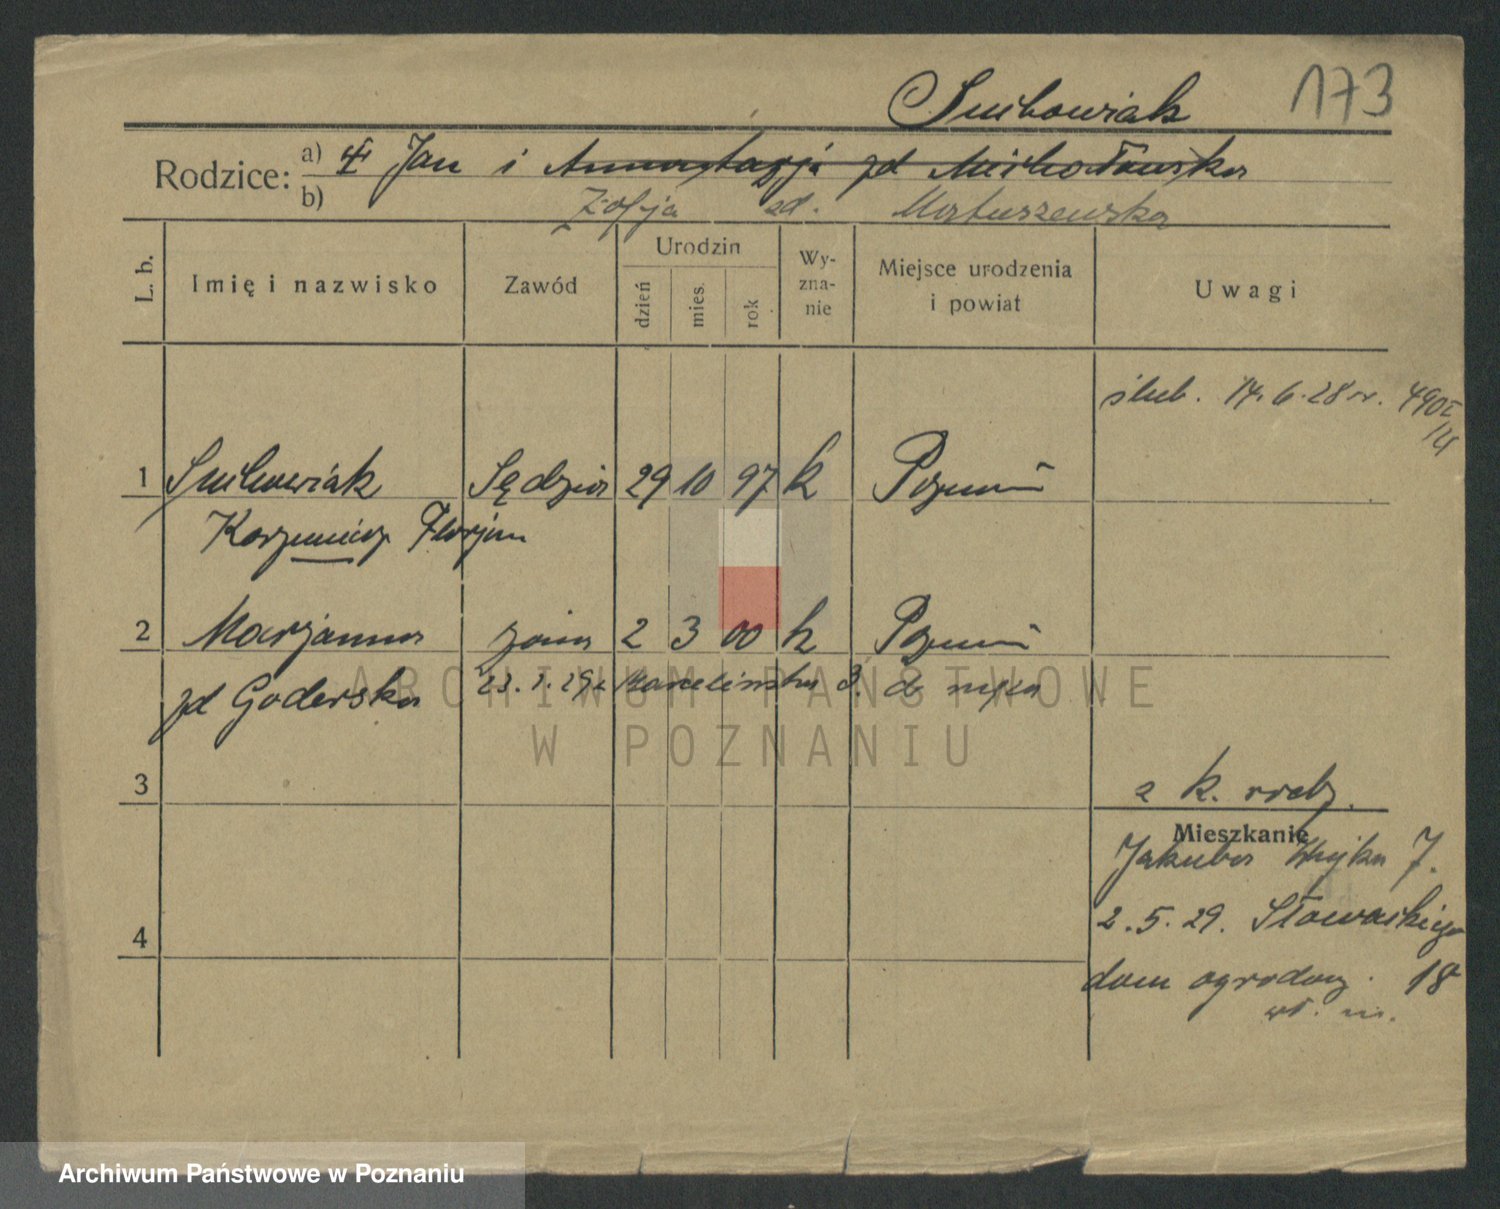 Suchowiak 173
Rodzice: a) Jan i Anastazja zd Michałowska
b) Zofja zd. Matuszewska
L. b. Imię i nazwisko Zawód Urodzin dzień mies. rok Wy-zna-nie Miejsce urodzenia i powiat Uwagi
ślub. 14. 6. 28 r.
1 Suchowiak Sędzia 29 10 97 k Poznań
Kazimierz Florjan
2 Marjanna żona 2 3 00 k Poznań
zd Goderska 23. 29 3. do męża
ARCHIWUM PAŃSTWOWE
W POZNANIU
3 k. rodz.
Mieszkanie
Jakuba Wujka 7.
2. 5. 29. Słowackiego
4
dom ogrodowy. 18
wł. m.
Archiwum Państwowe w Poznaniu